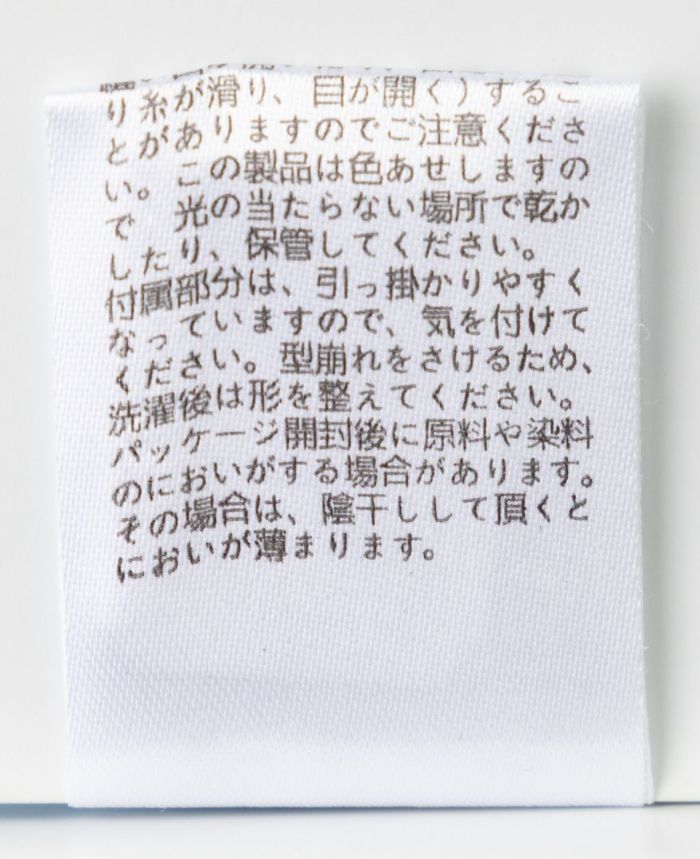 り糸が滑り、目が開く）するこ
とがありますのでご注意くださ
い。この製品は色あせしますの
で、光の当たらない場所で乾か
したり、保管してください。
付属部分は、引っ掛かりやすく
なっていますので、気を付けて
ください。型崩れをさけるため、
洗濯後は形を整えてください。
パッケージ開封後に原料や染料
のにおいがする場合があります。
その場合は、陰干しして頂くと
においが薄まります。